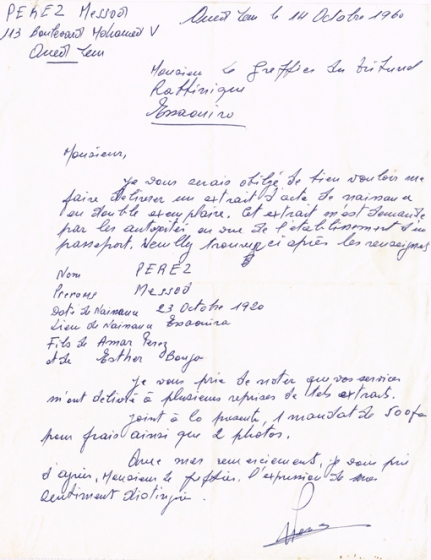 PEREZ Messod
113 Boulevard Mohamed V
Oued Zem
Oued Zem le 14 Octobre 1960
Monsieur Le Greffier du Tribunal
Rabbinique
Essaouira
Monsieur,
Je vous serais obligé de bien vouloir me
faire délivrer un extrait d'acte de naissance
en double exemplaire. Cet extrait m'est demandé
par les autorités en vue de l'établissement d'un
passeport. Veuillez trouver ci après les renseignem
Nom PEREZ
Prenoms Messod
Date de Naissance 23 Octobre 1920
Lieu de Naissance Essaouira
Fils de Amar Perez
et de Esther
Je vous prie de noter que vos services
m'ont délivré à plusieurs reprises de tels extraits.
Joint à la presente, 1 mandat de 500 f
pour frais ainsi que 2 photos.
Avec mes remerciements, je vous prie
d'agréer, Monsieur le greffier, l'expression de mes
sentiments distingués.